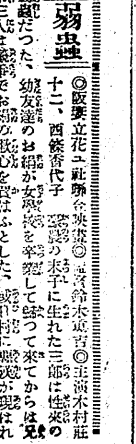 弱蟲
◎阪妻立花ユ社聯合映畫◎監督鈴木東吉◎主演木村莊
十二、西條香代子 の末子に生れた三郎は性來の
蟲だつた、幼友達のお絹が女學校を卒業して歸つて來てからは兄
人は競爭でお絹の歡心を買はふとした、或日村に が現はれ